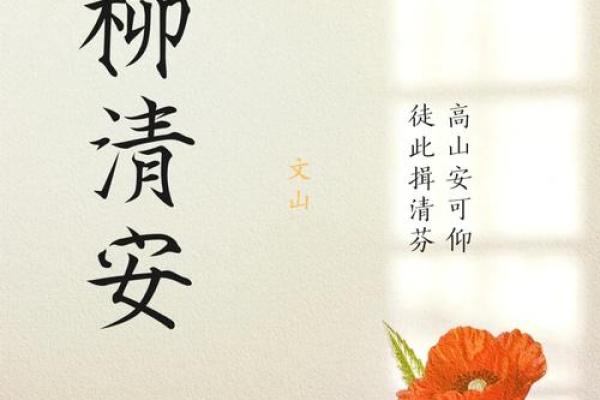 柳清安
文山
高山安可仰
徒此揖清芬